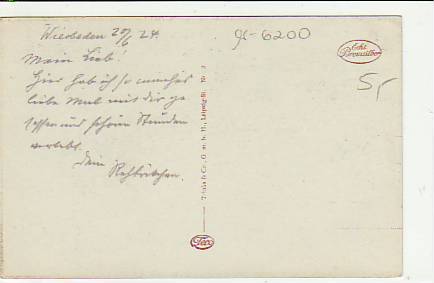 Wiesbaden 20/6 24.
Mein Lieb!
Hier hab ich so manches
liebe Mal mit dir ge
sessen und schöne Stunden
verlebt.
Dein
Rehbeinchen.
6200
Echt
Bromsilber
5,-
Trinks & Co., G. m. b. H., Leipzig
Nr
Trico